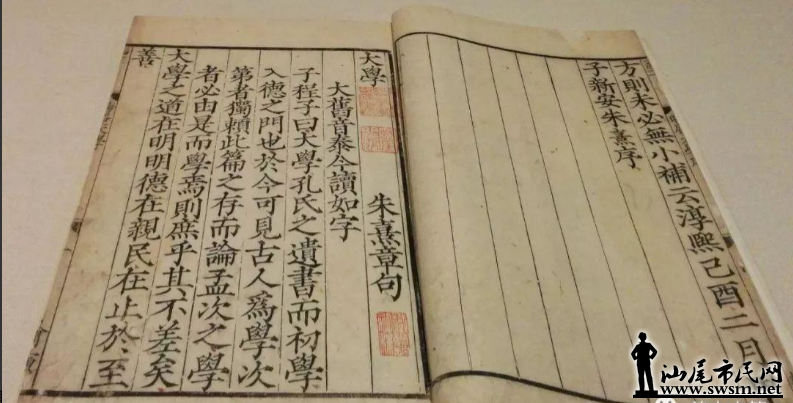 方則未必無小補云淳熙己酉二月
子新安朱熹序
大學
朱熹章句
大舊音泰今讀如字
子程子曰大學孔氏之遺書而初學
入德之門也於今可見古人為學次
第者獨賴此篇之存而論孟次之學
者必由是而學焉則庶乎其不差矣
大學之道在明明德在親民在止於至
善
汕尾市民网
www.swsm.net